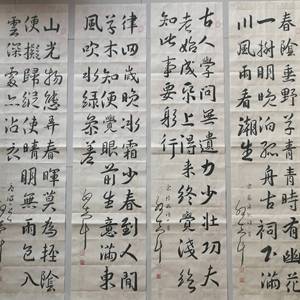 春陰垂野草青青時有幽花
一樹明晚泊孤舟古祠下滿
川風雨看潮生
古人學問無遺力少壯工夫
老始成紙上得來終覺淺絕
知此事要躬行
律回歲晚冰霜少春到人間
草木知便覺眼前生意滿東
風吹水綠參差
山光物態弄春暉莫為輕陰
便擬歸縱使晴明無雨色入
雲深處亦沾衣